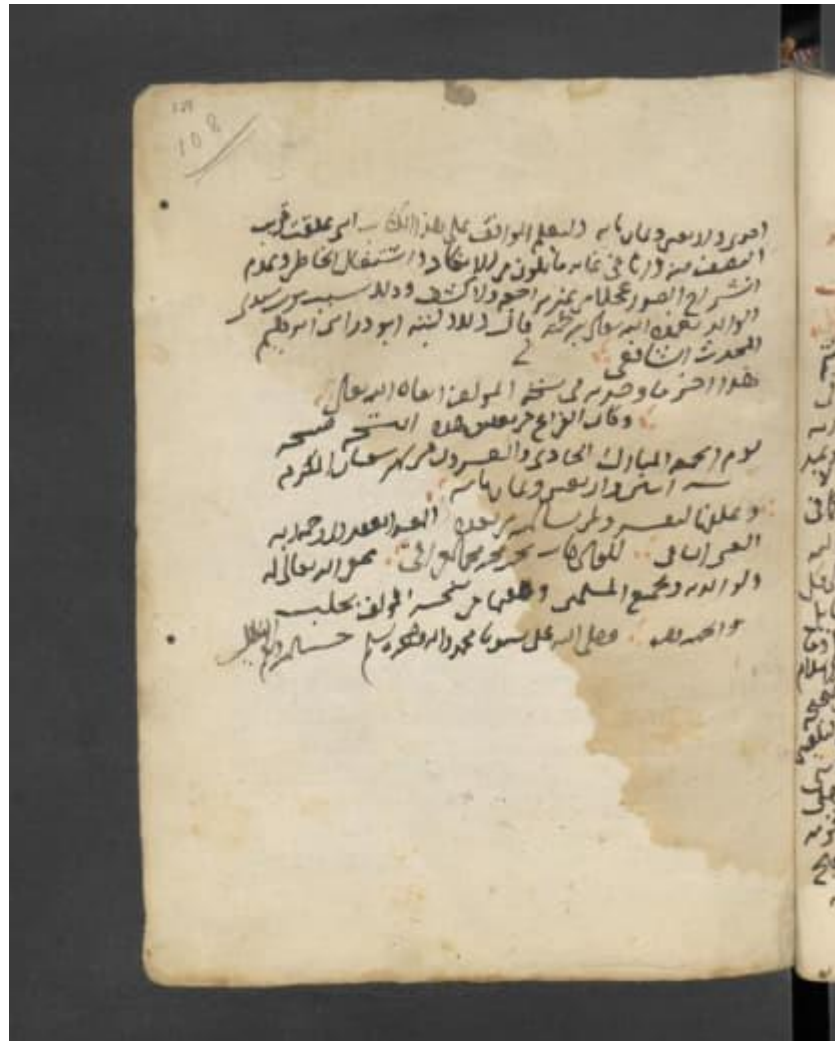 108
احدى واربعين وثمان مايه وليعلم الواقف على هذا الكتاب انى علقت قريب
النصف منه وانا فى غايه ما يكون من الانكاد واشتغال الخاطر وعدم
انشراح الصدر عجلا من غير مراجعه ولا كشف وذلك بسبب موت سيدى
الوالد تغمده الله تعالى برحمته قال ذلك وكتبه ابو ذر ابن ابرهيم
المحدث الشافعى
هذا اخر ما وجدته فى نسخة المولف ابقاه الله تعالى
وكان الفراغ من تعليق هذه النسخة صبيحة
يوم الجمعه المبارك الحادى والعشرون من شهر شعبان المكرم
سنه اثنين واربعين وثمان مايه
وعلقها لنفسه ولمن شا الله من بعده العبد الفقير الى رحمة ربه
محمد بن محمد بن محمد غفر الله تعالى له
ولوالديه ولجميع المسلمين ونقلها من نسخة المولف بحلب
والحمد لله وصلى الله على سيدنا محمد واله وصحبه وسلم حسبنا الله ونعم الوكيل